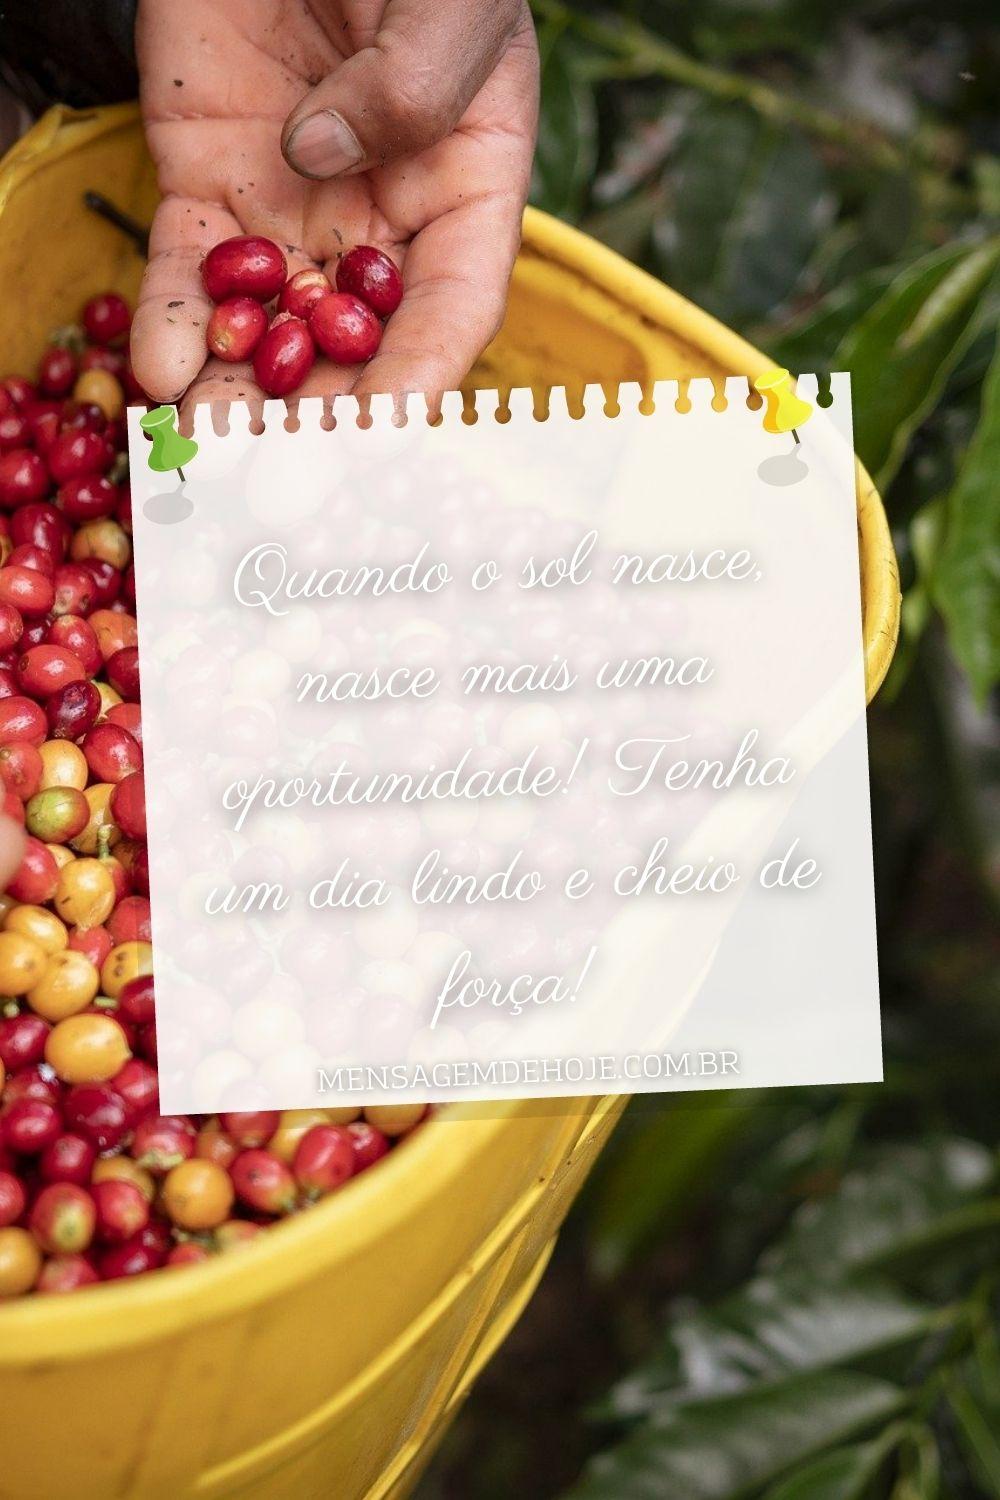 Quando o sol nasce,
nasce mais uma
oportunidade! Tenha
um dia lindo e cheio de
força!
MENSAGEMDEHOJE.COM.BR